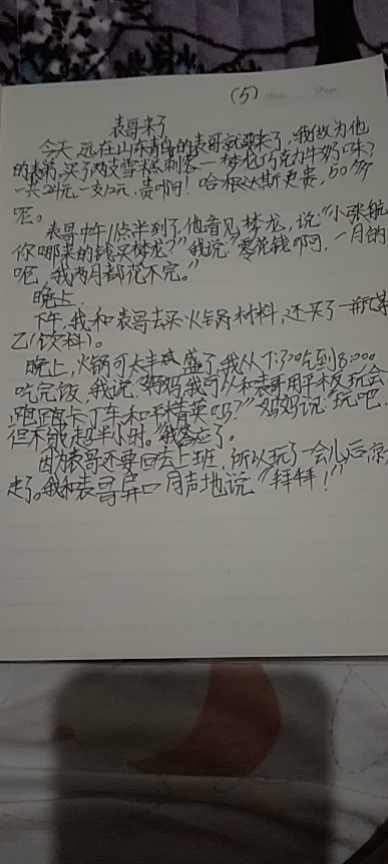 (5)
表哥来了
今天,远在山东青岛的表哥就要来了,我做为他
的表弟,买了两支雪糕刺客一梦龙巧克力牛奶口味?
一共24元,一支12元,贵啊!哈根达斯更贵,50多
呢。
表哥中午1点半到了,他看见梦龙,说:"小张航
你哪来的钱买梦龙?"我说:"零花钱啊,一月的
呢,我两月都花不完。"
晚上,
下午,我和表哥去买火锅材料,还买了一瓶茶
乙(饮料)。
晚上,火锅可太丰盛了,我从7:00吃到8:00
吃完饭,我说:"妈妈我可以和表哥用平板玩会
跑跑卡丁车和球精英吗?"妈妈说:"玩吧,
但不能超半小时。"我答应了。
因为表哥还要回去上班,所以玩了一会儿后,就
走了。我和表哥异口同声地说:"拜拜!"